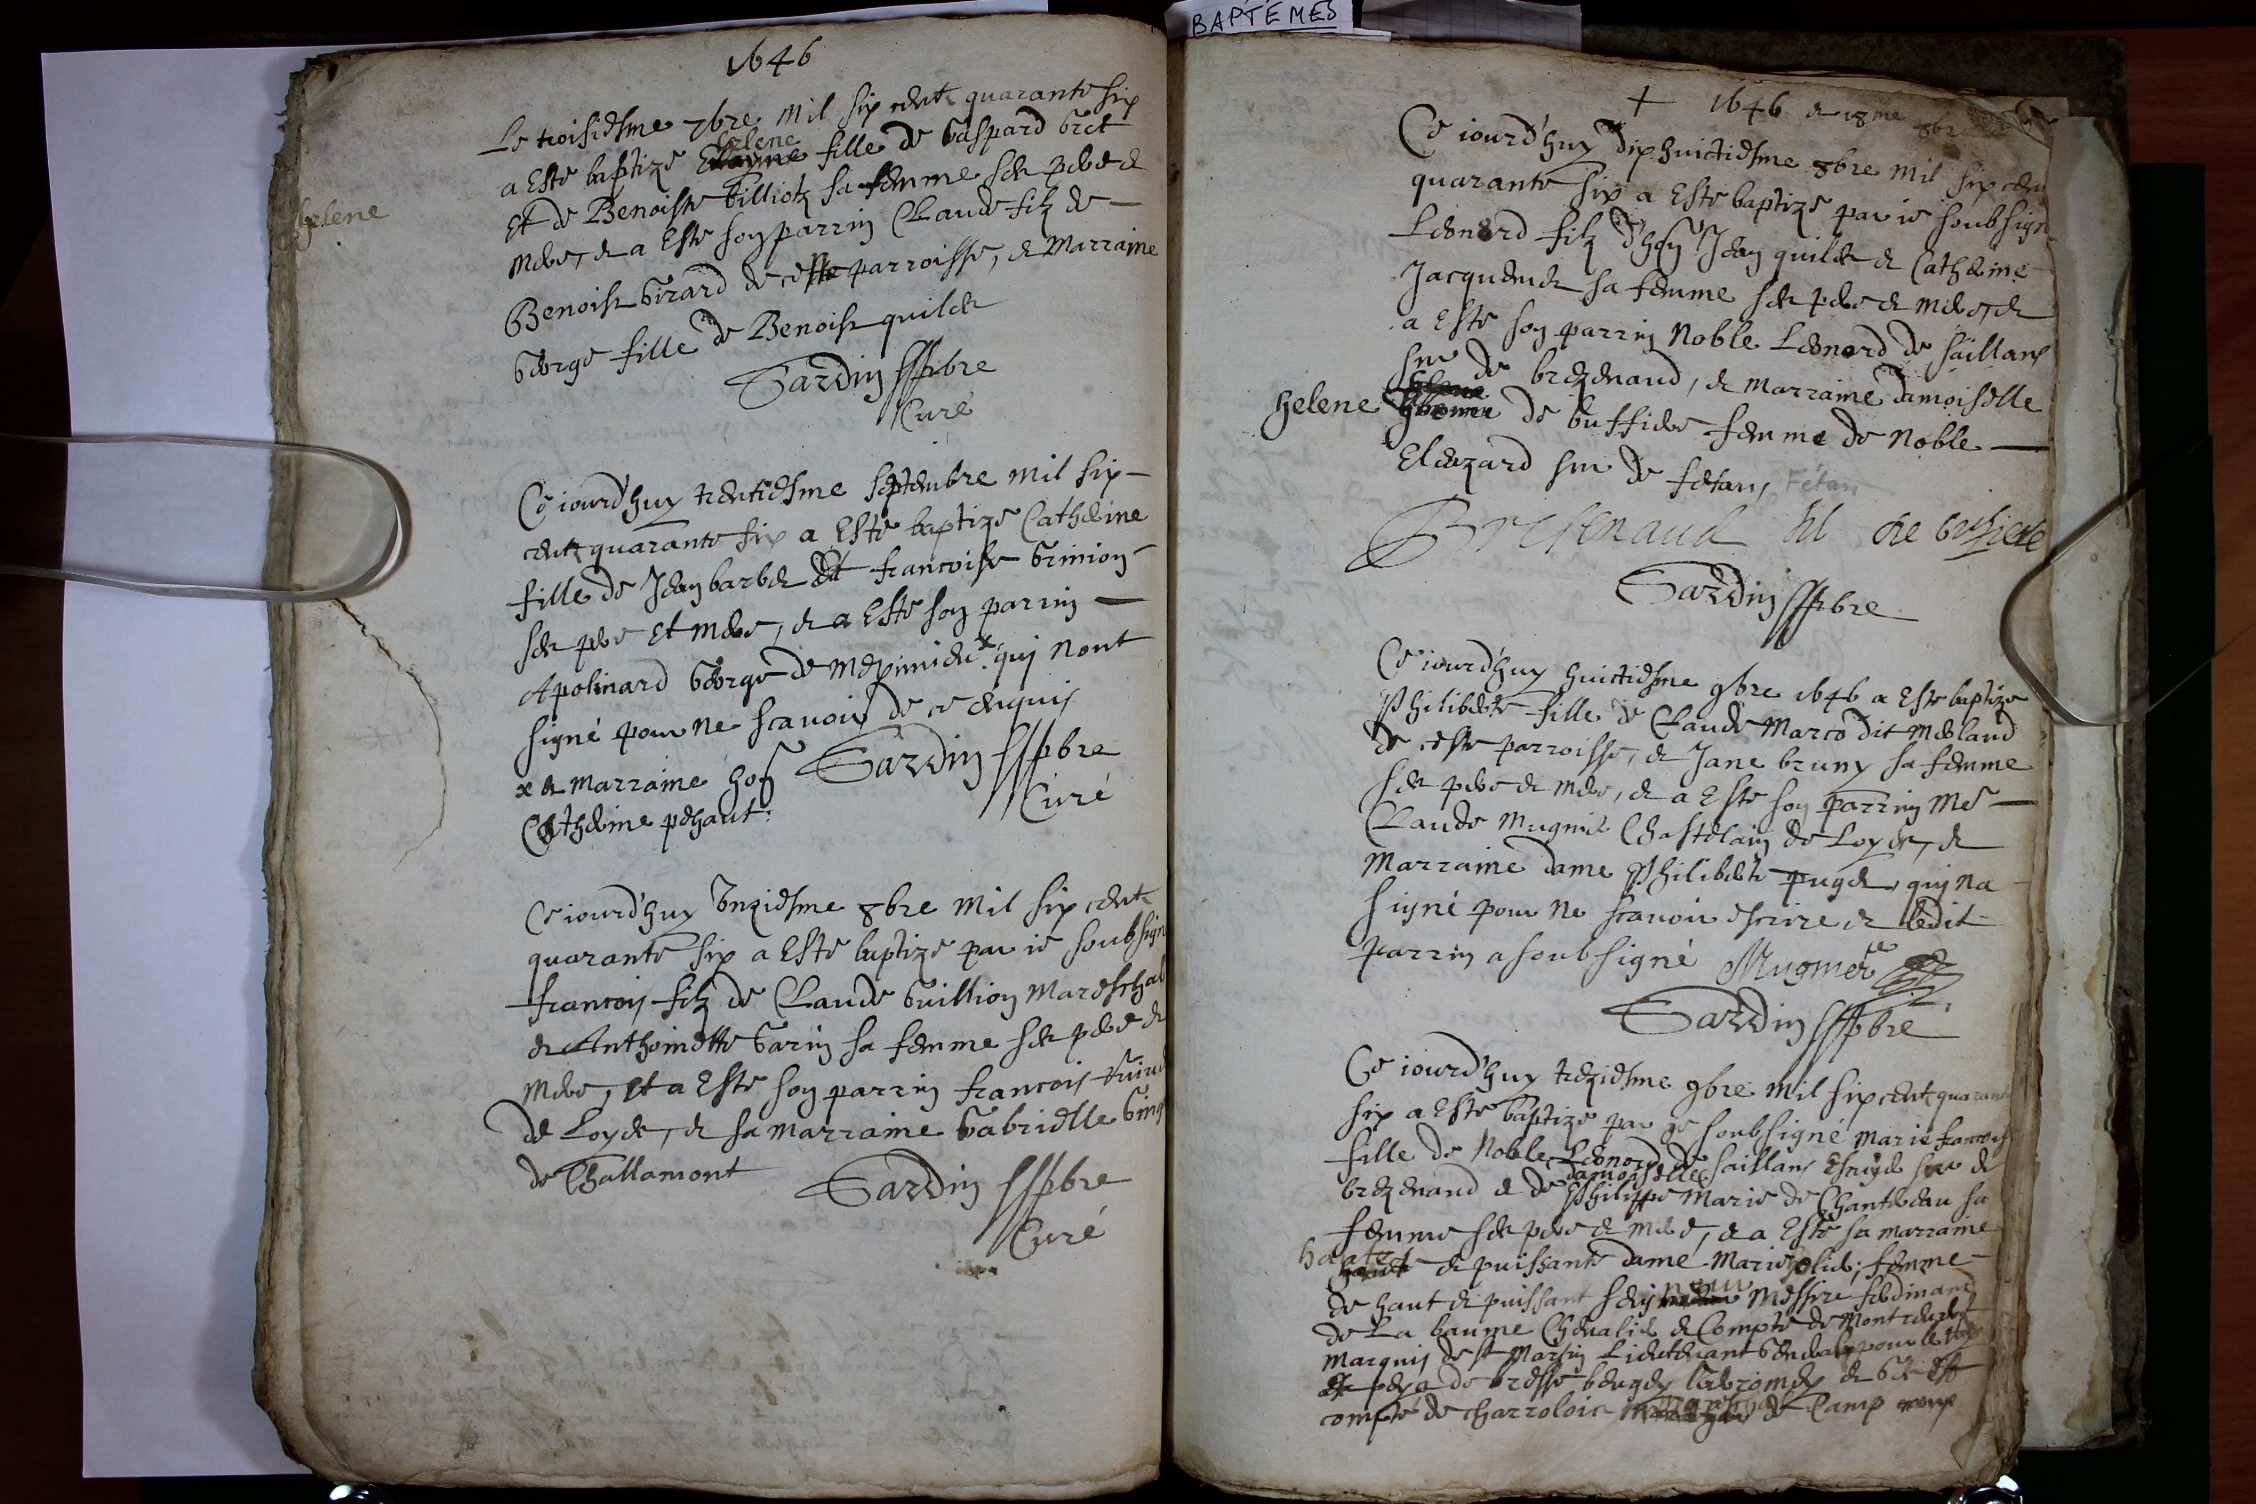 BAPTEMES
1646
Le troisiesme 7bre mil six cent quarante six
a Este baptize helene fille de Gaspard
Et de Benoiste Billiotz sa femme ses pere &
mere, & a Este son parrin Claude filz de
Benoist Girard de ceste parroisse, & Marraine
George fille de Benoist quilet
Sardin pbre
Curé
helene
Ce iourd'huy trentiesme septembre mil six
cent quarante six a Este baptize Catherine
fille de Jean barbet Et francoise Grinion
ses pere Et mere, & a Este son parrin
Apolinard George de Meximieu x qui n'ont
signé pour ne scavoir de ce enquis
Sardin pbre
Curé
x & marraine
Catherine pehaut:
Ce iourd'huy Onziesme 8bre mil six cent
quarante six a Este baptize par ie soubsigne
francois filz de Claude Guillion Mareschal
& Anthoinette Garin sa femme ses pere &
mere, Et a Este son parrin francois
de Loyes, & sa marraine Gabrielle
de Challamont
Sardin pbre
Curé
+ 1646 & 18me 8bre
Ce iourd'huy dix huictiesme 8bre mil six cent
quarante six a Este baptize par ie soubsigne
Leonard filz d'hon Jean quilet & Catherine
Jacquemet sa femme ses pere & mere, &
a Este son parrin Noble Leonard de saillans
sr de brezenaud, & marraine damoiselle
helene de bussiere femme de Noble
Eleazard sr de fetans Fétan
Bressenaud hl de bussiere
Sardin pbre
Ce iourd'huy huictiesme 9bre 1646 a Este baptize
Philiberte fille de Claude Marco dit merland
de ceste parroisse, & Jane bruny sa femme
ses pere & mere, & a Este son parrin Me
Claude Mugnier Chastelain de Loyes, &
Marraine dame Philiberte puget, qui n'a
signé pour ne scavoir escrire & ledit
parrin a soubsigné Mugnier
Sardin pbre
Ce iourd'huy treziesme 9bre mil six cent quarante
six a Este baptize par ie soubsigné marie francoise
fille de Noble Leonord de saillans Escuyer sr de
brezenaud & de damoiselle Philippe Marie de Chantereau sa
femme ses pere & mere, & a Este sa marraine
haute & puissante dame Marie olier, femme
de haut & puissant seigneur Messire ferdinand
de La baume Chevalier & Compte de Montrevel
Marquis de st Martin Lieutenant General pour le Roy
es pays de bresse beugey Valromey & Gex Et
compté de charrolois mareschal de Camp